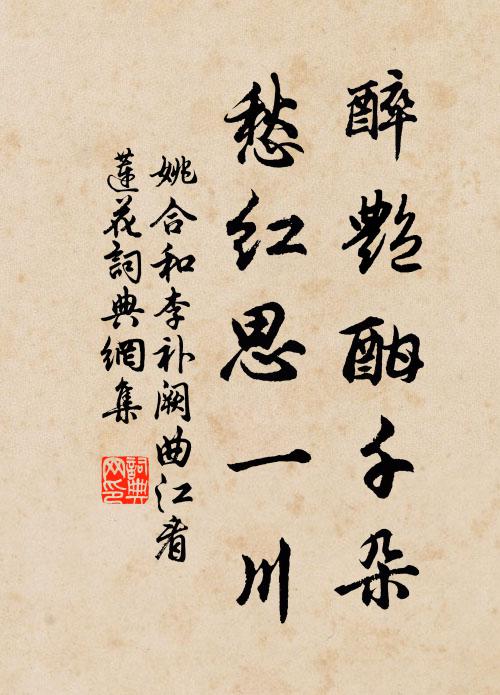 醉艷酣千朵
愁红思一川
姚合和李补阙曲江看
蓮花詞典網集
詞典
网印